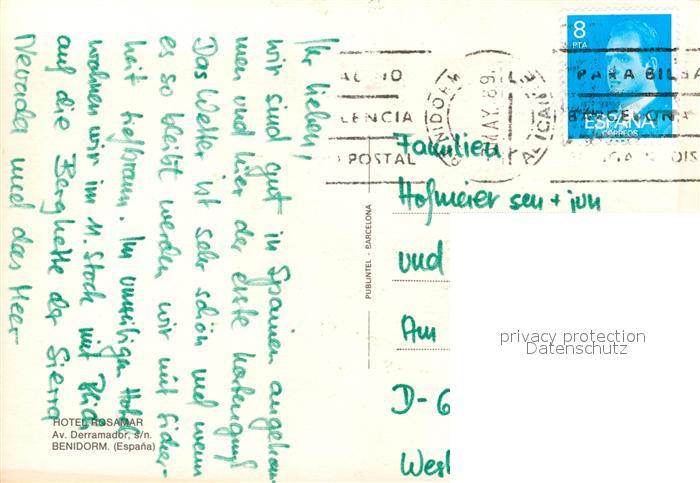 Ihr Lieben,
wir sind gut in Spanien angekom-
men und hier der erste Kartengruß
Das Wetter ist sehr schön und wenn
es so bleibt werden wir mit Sicher-
heit tiefbraun. Im unseitigen Hotel
wohnen wir im 11. Stock mit Blick
auf die Berghette der Sierra
Nevada und das Meer
HOTEL ROSAMAR
Av. Derramador, s/n.
BENIDORM. (España)
PUBLINTEL - BARCELONA
8
PTA
ESPAÑA
CORREOS
PARA BILBA
LENCIA
BARCELONA
POSTAL
BENIDORM
MAY. 89
ALICANTE
Familien
Hofmeier sen + jun
und
Am
D-6
West
privacy protection
Datenschutz